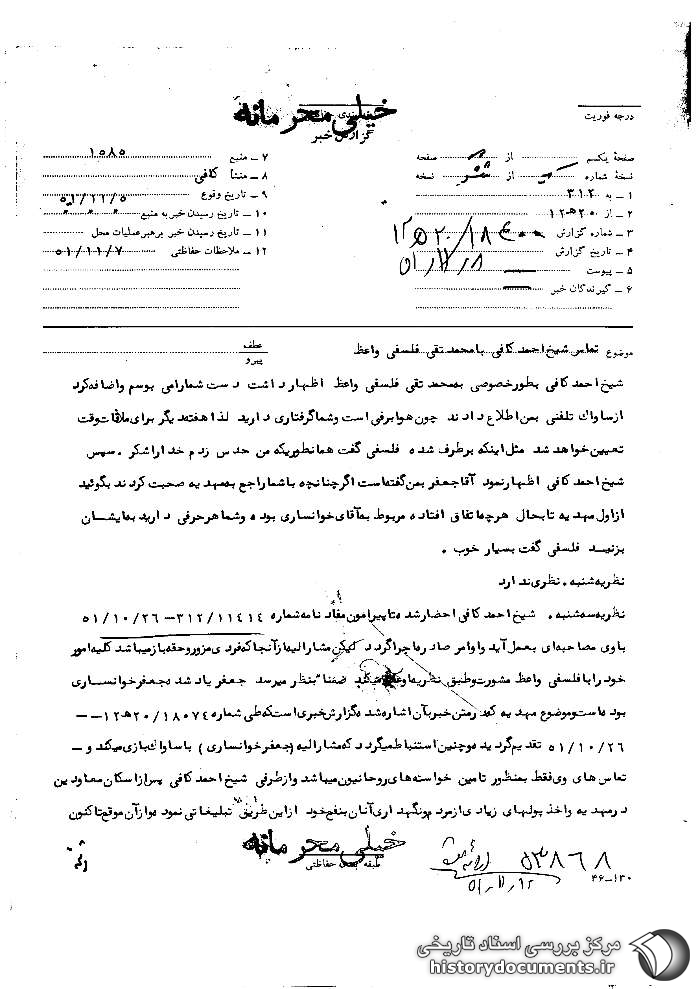 خیلی محرمانه
گزارش خبر
درجه فوریت
صفحهٔ یکم از صفحه
نسخهٔ شماره از نسخه
۱ – به ۳۱۲
۲ – از ۲۰ﻫ۱۲
۳ – شماره گزارش
۴ – تاریخ گزارش
۵ – پیوست
۶ – گیرندگان خبر
۷ – منبع ۱۵۸۵
۸ – منشأ کافی
۹ – تاریخ وقوع
۱۰ – تاریخ رسیدن خبر به منبع
۱۱ – تاریخ رسیدن خبر برهبر عملیات محل
۱۲ – ملاحظات حفاظتی ۵۱/۱۱/۷
موضوع تماس شیخ احمد کافی با محمد تقی فلسفی واعظ
عطف
پیرو
شیخ احمد کافی بطور خصوصی به محمد تقی فلسفی واعظ اظهار داشت دست شما را می بوسم و اضافه کرد
از ساواک تلفنی بمن اطلاع دادند چون هوا برفی است و شما گرفتاری دارید لذا هفته دیگر برای ملاقات وقت
تعیین خواهد شد مثل اینکه برطرف شده فلسفی گفت همانطوریکه من حدس زدم خدا را شکر . سپس
شیخ احمد کافی اظهار نمود آقا جعفر بمن گفته است اگر چنانچه با شما راجع به مهدیه صحبت کردند بگوئید
از اول مهدیه تا بحال هر چه اتفاق افتاده مربوط به آقای خوانساری بوده و شما هر حرفی دارید به ایشان
بزنید فلسفی گفت بسیار خوب .
نظریه شنبه . نظری ندارد
نظریه سه شنبه . شیخ احمد کافی احضار شده تا پیرامون مفاد نامه شماره ۳۱۲/۱۱۴۱۴ – ۵۱/۱۰/۲۶
با وی مصاحبه ای بعمل آید و اوامر صادره اجرا گردد لیکن مشارالیه از آنجا که فردی مزور و حقه باز میباشد کلیه امور
خود را با فلسفی واعظ مشورت و طبق نظریه وی میکند ضمنا بنظر میرسد جعفر یاد شده جعفر خوانساری
بوده است و موضوع مهدیه که در متن خبر بآن اشاره شده گزارش خبری است که طی شماره ۲۰/۱۸۰۷۴ﻫ۱۲ – –
۵۱/۱۰/۲۶ تقدیم گردیده و چنین استنباط میگردد که مشارالیه (جعفر خوانساری) با ساواک بازی میکند و –
تماس های وی فقط بمنظور تامین خواسته های روحانیون میباشد و از طرفی شیخ احمد کافی پس از اسکان معاودین
در مهدیه و اخذ پولهای زیادی از مردم و نگهداری آنان بنفع خود از این طریق تبلیغاتی نموده و از آن موقع تا کنون
خیلی محرمانه
طبقه بندی حفاظتی
۵۳۸۶۸
۴۶–۱۳۰
مرکز بررسی اسناد تاریخی
historydocuments.ir